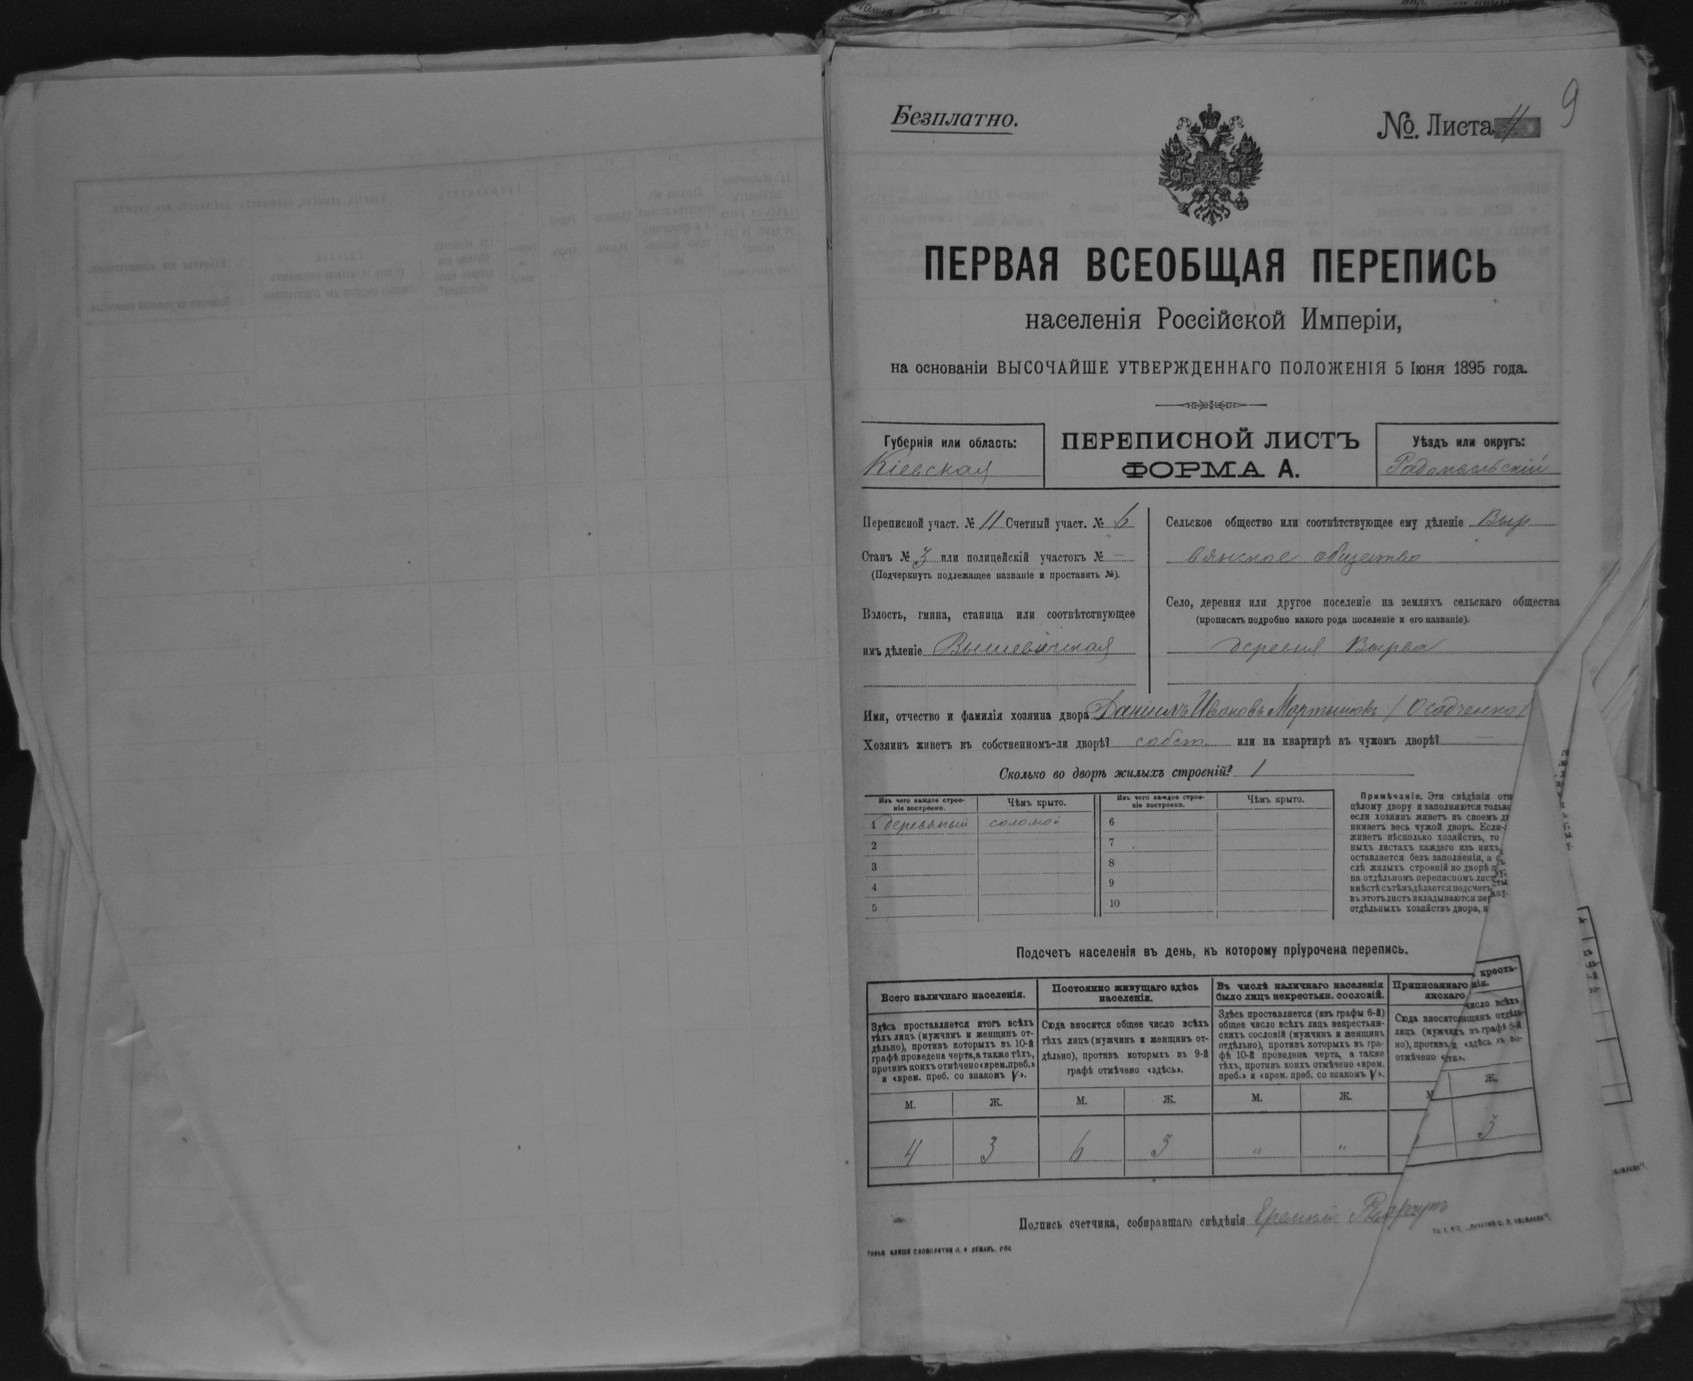 9
Безплатно.
№. Листа 4
ПЕРВАЯ ВСЕОБЩАЯ ПЕРЕПИСЬ
населенія Россійской Имперіи,
на основаніи ВЫСОЧАЙШЕ УТВЕРЖДЕННАГО ПОЛОЖЕНІЯ 5 Іюня 1895 года.
Губернія или область:
Кіевская
ПЕРЕПИСНОЙ ЛИСТЪ
ФОРМА А.
Уѣздъ или округъ:
Радомысльскій
Переписной участ. № 11 Счетный участ. № 6
Станъ № 3 или полицейскій участокъ № —
(Подчеркнуть подлежащее названіе и проставить №).
Волость, гмина, станица или соотвѣтствующее
имъ дѣленіе Вышевичская
Сельское общество или соотвѣтствующее ему дѣленіе Выр
вянское общество
Село, деревня или другое поселеніе на земляхъ сельскаго общества
(прописать подробно какого рода поселеніе и его названіе).
деревня Вырва
Имя, отчество и фамилія хозяина двора Даніилъ Ивановъ Мартыновъ / Осадченко /
Хозяинъ живетъ въ собственномъ-ли дворѣ? собст. или на квартирѣ въ чужомъ дворѣ? —
Сколько во дворѣ жилыхъ строеній? 1
Изъ чего каждое строе-
ніе построено.
Чѣмъ крыто.
Изъ чего каждое строе-
ніе построено.
Чѣмъ крыто.
1 деревяный соломой
2
3
4
5
6
7
8
9
10
Примѣчаніе. Эти свѣдѣнія отн
цѣлому двору и заполняются только
если хозяинъ живетъ въ своемъ д
нимаетъ весь чужой дворъ. Если
живетъ нѣсколько хозяйствъ, то
ныхъ листахъ каждаго изъ нихъ
оставляется безъ заполненія, а
слѣ жилыхъ строеній во дворѣ
на отдѣльномъ переписномъ лист
вмѣстѣ съ тѣмъ дѣлается подсчетъ
въ этотъ листъ вкладываются пе
отдѣльныхъ хозяйствъ двора,
Подсчетъ населенія въ день, къ которому пріурочена перепись.
Всего наличнаго населенія.
Здѣсь проставляется итогъ всѣхъ
тѣхъ лицъ (мужчинъ и женщинъ от-
дѣльно), противъ которыхъ въ 10-й
графѣ проведена черта, а также тѣхъ,
противъ коихъ отмѣчено «врем. преб.»
и «врем. преб. со знакомъ V».
М.
Ж.
4
3
Постоянно живущаго здѣсь
населенія.
Сюда вносится общее число всѣхъ
тѣхъ лицъ (мужчинъ и женщинъ от-
дѣльно), противъ которыхъ въ 9-й
графѣ отмѣчено «здѣсь».
М.
Ж.
6
3
Въ числѣ наличнаго населенія
было лицъ некрестьян. сословій.
Здѣсь проставляется (изъ графы 6-й)
общее число всѣхъ лицъ некрестьян-
скихъ сословій (мужчинъ и женщинъ
отдѣльно), противъ которыхъ въ гра-
фѣ 10-й проведена черта, а также
тѣхъ, противъ коихъ отмѣчено «врем.
преб.» и «врем. преб. со знакомъ V».
М.
Ж.
"
"
Приписаннаго
янскаго
Сюда вносит
лицъ (мужчи
но), противъ
отмѣчено
крест-
нія.
число всѣхъ
Ж.
3
Подпись счетчика, собиравшаго свѣдѣнія